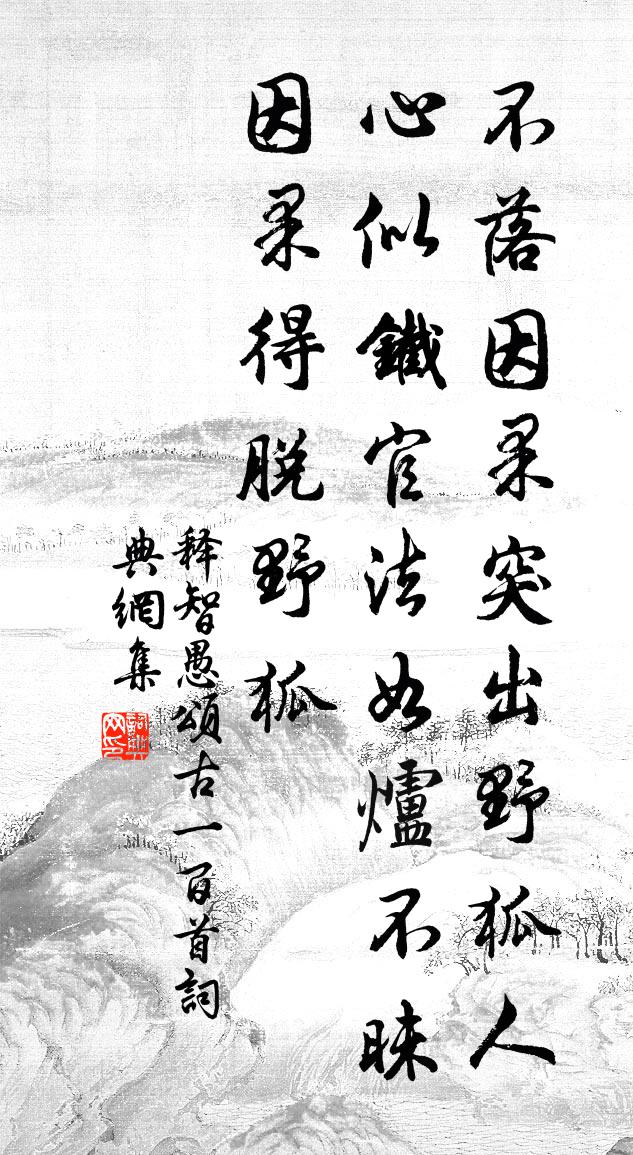 不落因果突出野狐人
心似鐵官法如爐不昧
因果得脫野狐
释智愚頌古一百首詞
典網集